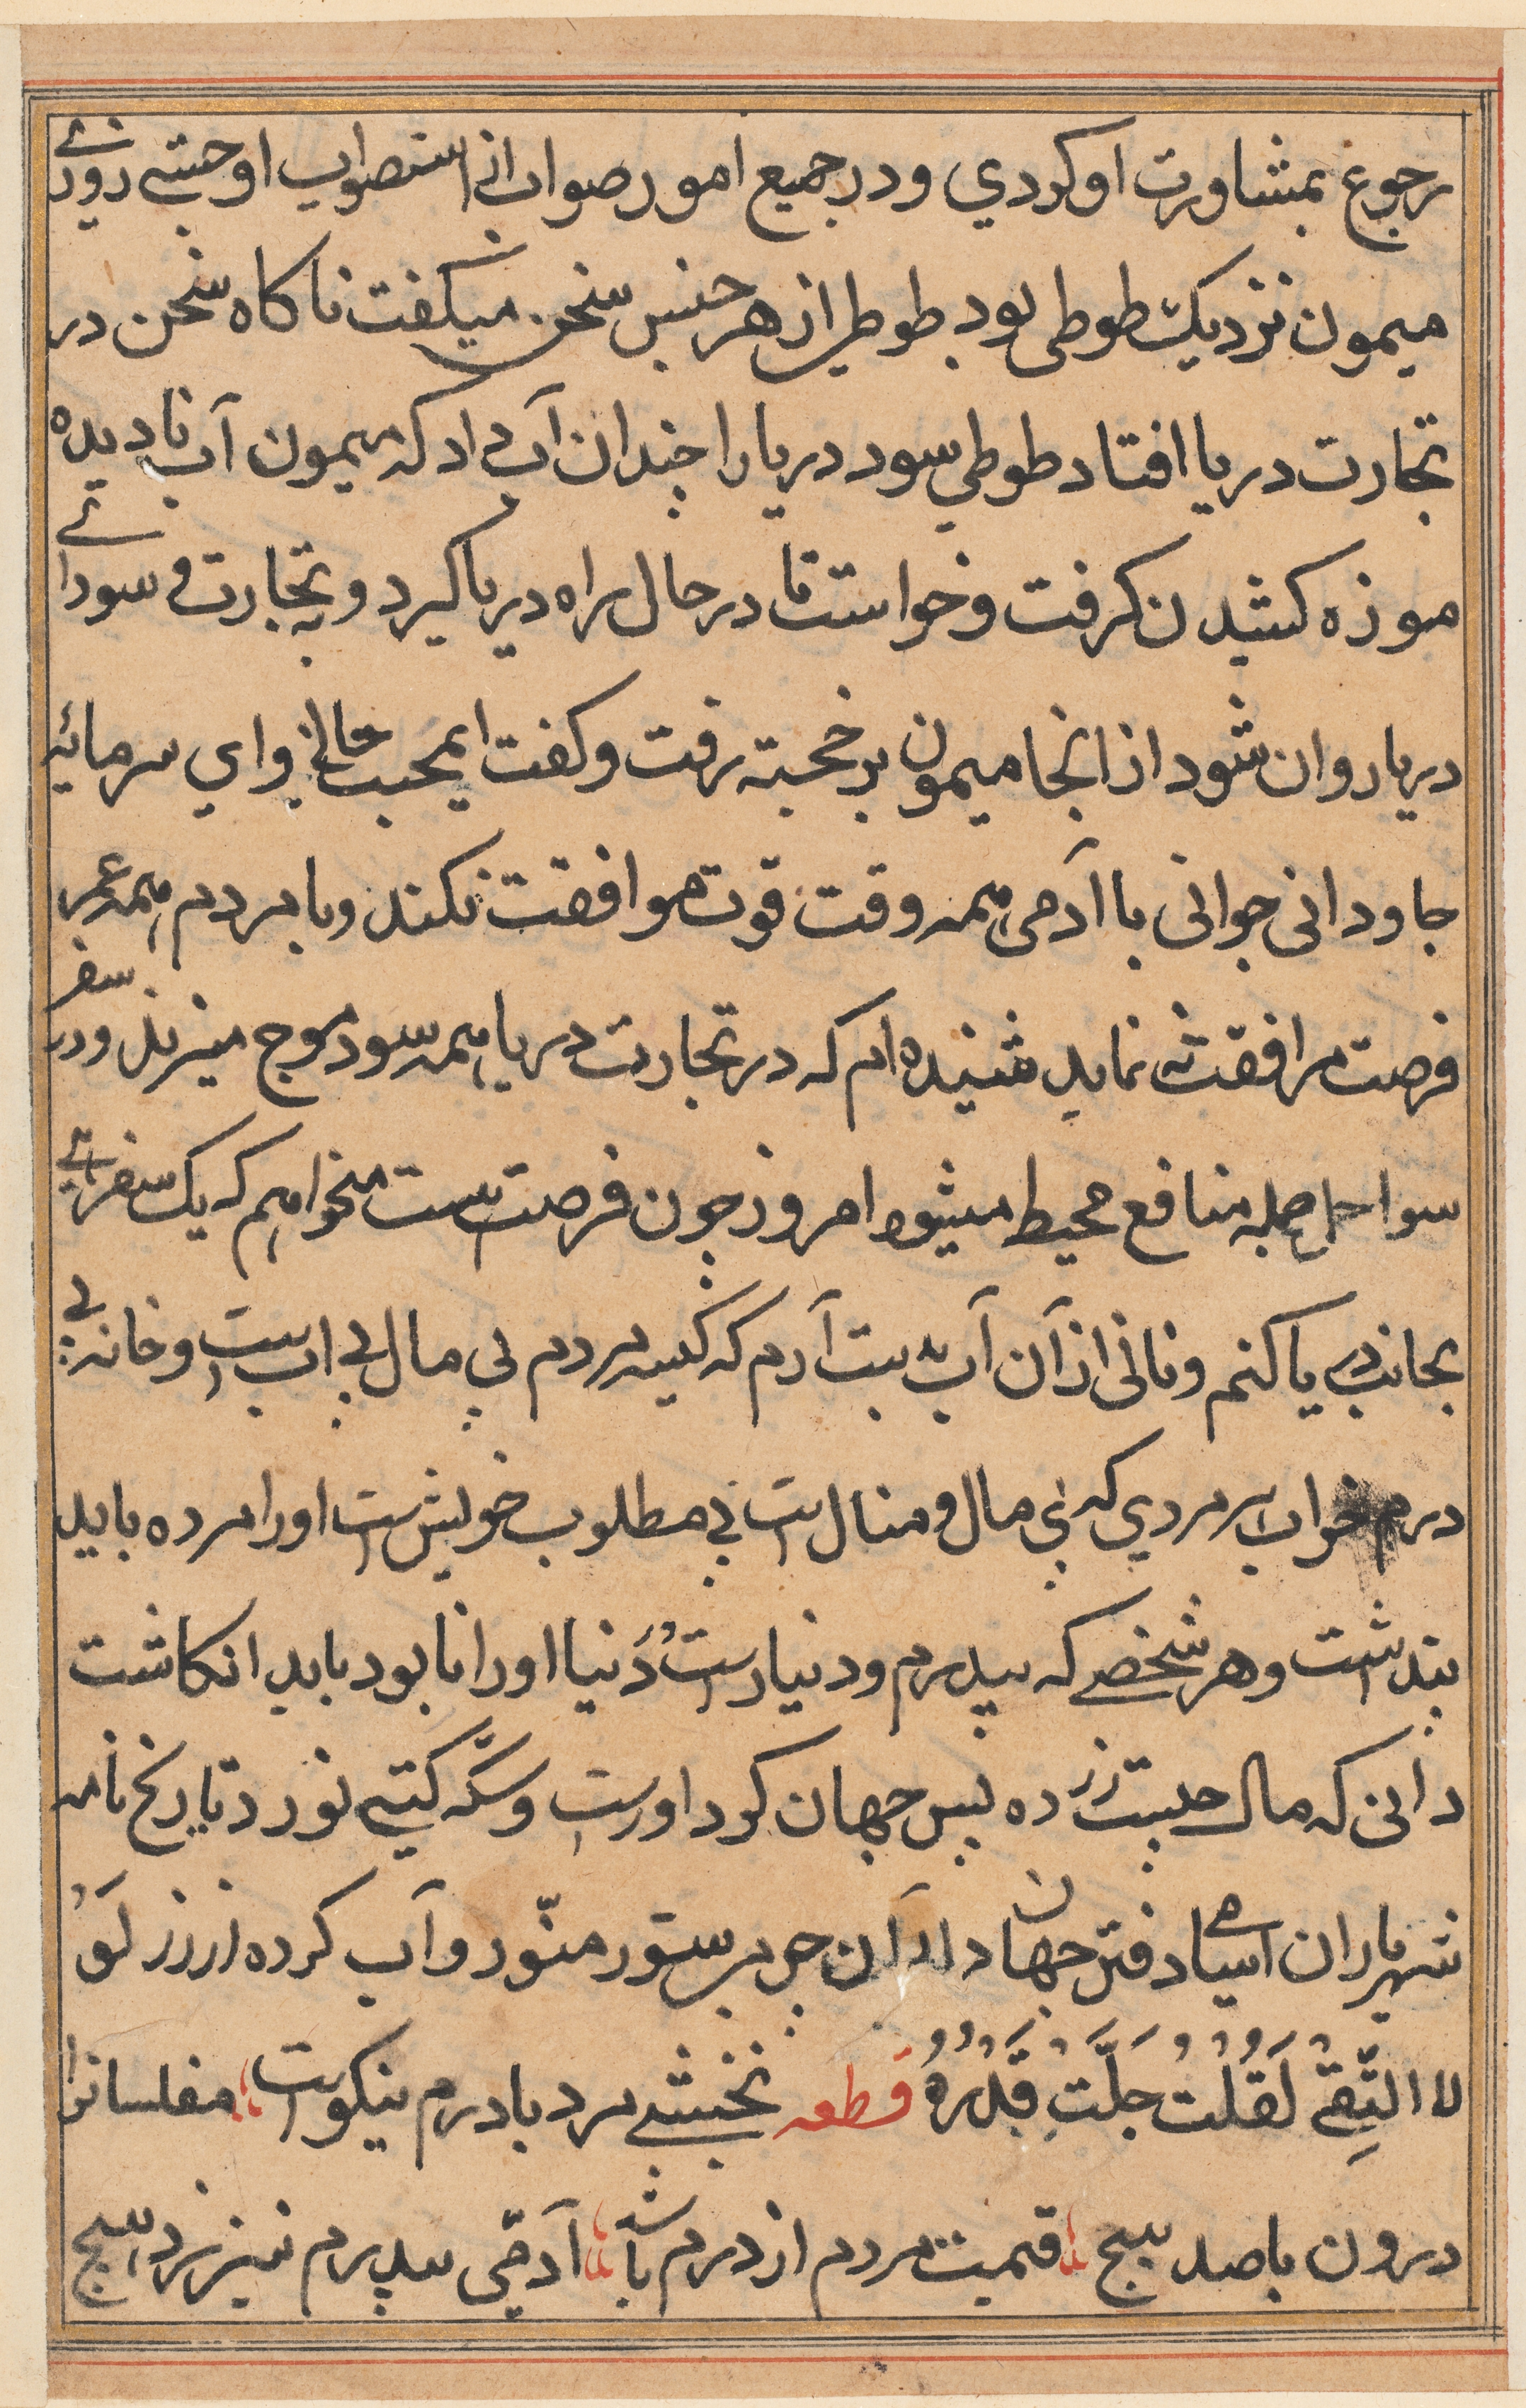 رجوع بمشاورت او كردي ودر جميع امور صواب از استصواب او جستي روزي
ميمون نزديك طوطي بود طوطي از هر جنس سخن ميكفت ناكاه سخن در
تجارت دريا افتاد طوطي سود دريا را چندان آب داد كه ميمون آب ناديده
موزه كشيدن كرفت و خواست تا در حال راه دريا كيرد و بتجارت و سوداى
دريا روان شود از انجا ميمون بر خجسته رفت وكفت ايمحب جاني واي سرمايه
جاوداني جواني با آدمي همه وقت قوت موافقت نكند وبا مردم همه عمر
فرصت مرافقت ننمايد شنيده ام كه در تجارت دريا همه سود موج ميزند ودر سفر
سواحل جمله منافع محيط ميشود امروز چون فرصت هست ميخواهم كه يك سفرى
بجانب دريا كنم وناني از آن آب بدست آرم كه كيسه مردم بي مال بي آب است وخانه بي
درم خراب هر مردي كه بي مال و منال است بي مطلوب خويش است اورا مرده بايد
پنداشت وهر شخصي كه بيدرم ودينارست دُنيا اورا نابود بايد انكاشت
داني كه مال چيست زرده پس جهان كرد اورست وسكّه كيتي نورد تاريخ نامه
شهرياران اسامي دفتر جهان داران جرم پر ستور منوّر وآب كرده ازرز لَوْ
لا التقى لَقُلْتُ جَلَّتْ قُدْرَتُهُ قطعه نخشبي مرد بادرم نيكوست مفلسانرا
درون باصد پيچ قيمت مردم از درم باشد آدمي بيدرم نيرزد هيچ